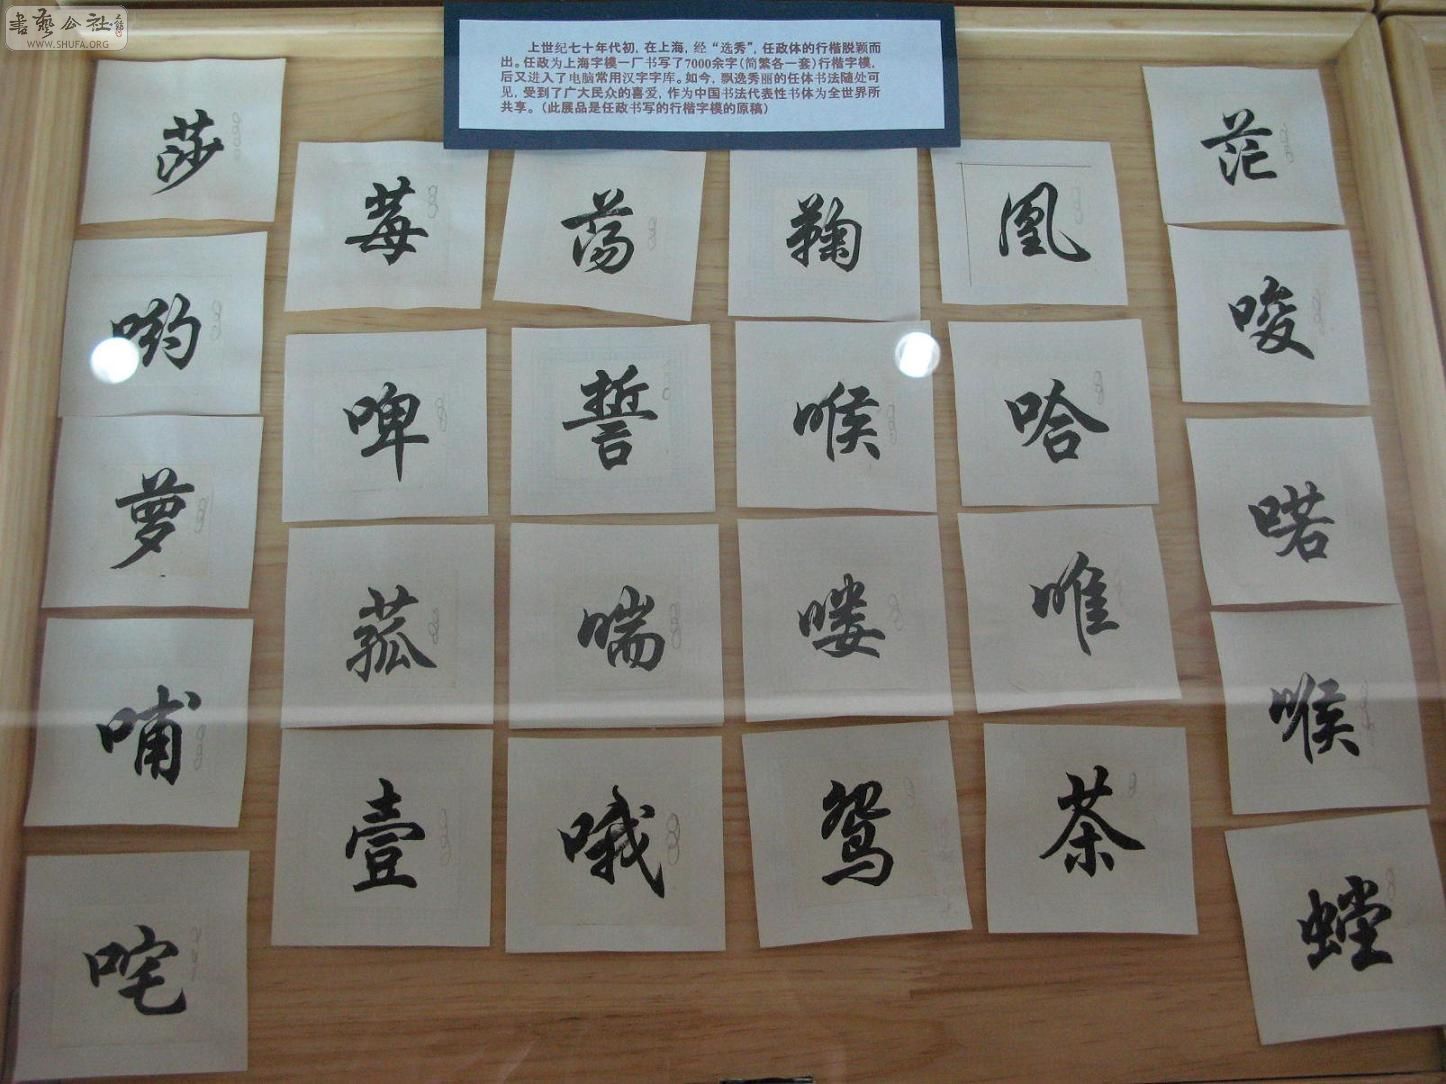 書藝公社
WWW.SHUFA.ORG
上世纪七十年代初，在上海，经“选秀”，任政体的行楷脱颖而
出。任政为上海字模一厂书写了7000余字(简繁各一套)行楷字模，
后又进入了电脑常用汉字字库。如今，飘逸秀丽的任体书法随处可
见，受到了广大民众的喜爱，作为中国书法代表性书体为全世界所
共享。(此展品是任政书写的行楷字模的原稿)
莎
莓
荡
鞠
凰
茫
哟
啤
誓
喉
哈
唆
萝
菰
喘
喽
唯
喏
哺
壹
哦
鸳
荼
喉
咤
螳